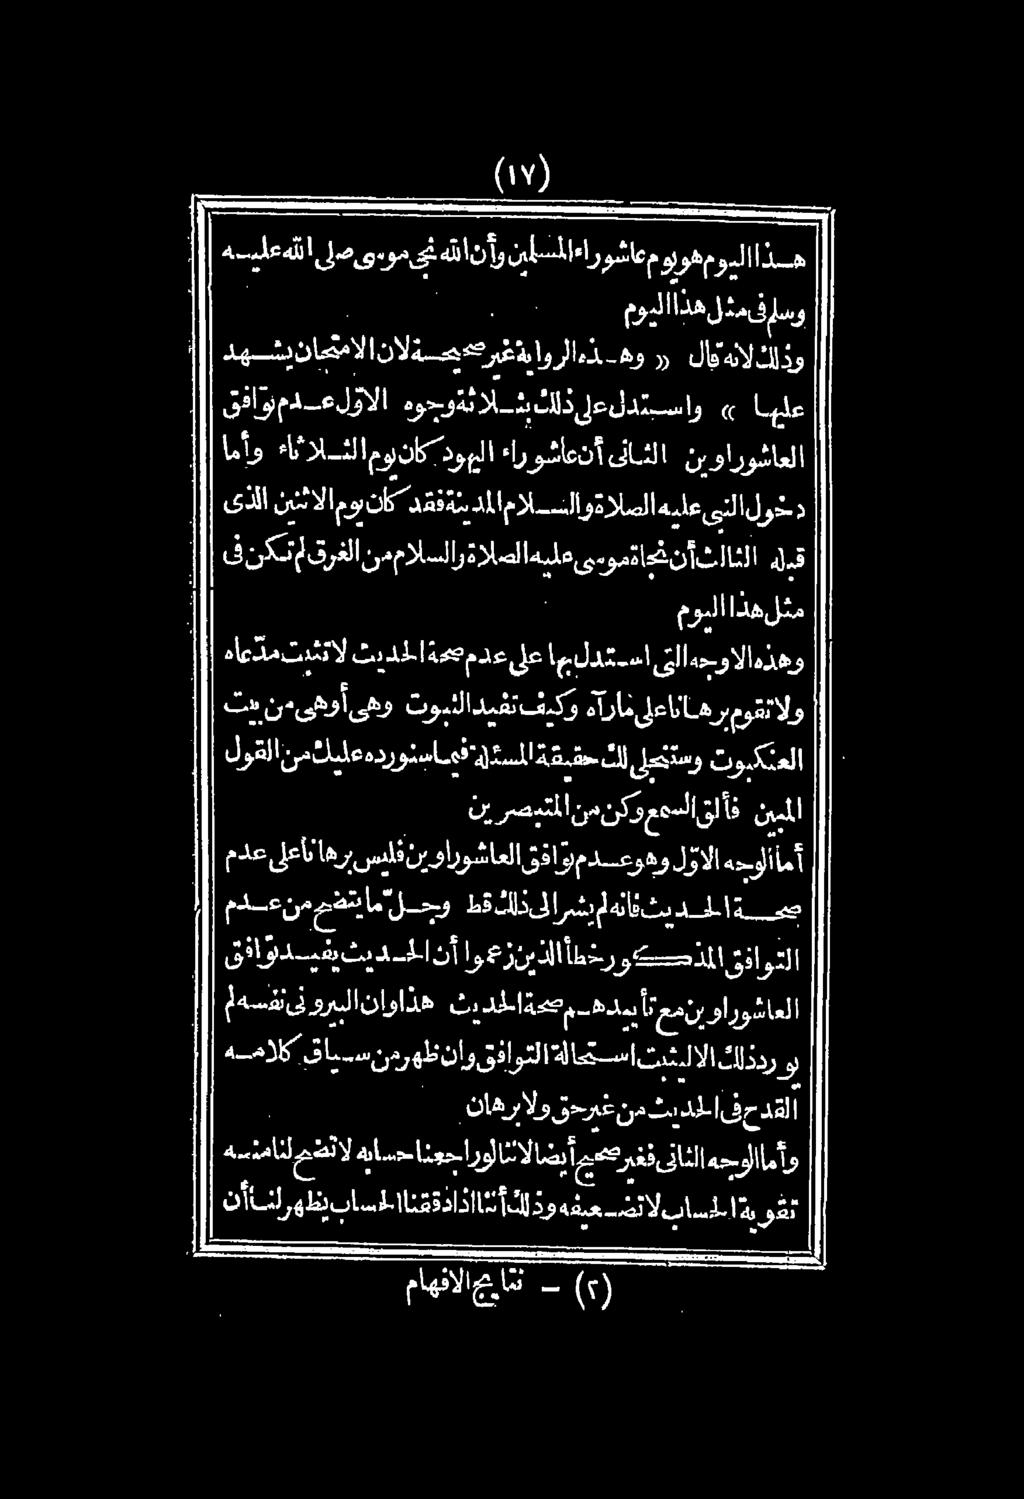 (١٧)
هذا اليوم هو يوم عاشوراء المسلمين وأن الله نجى موسى صلى الله عليه
وسلم فى مثل هذا اليوم
وذلك لانه قال « وهذه الرواية غير صحيحة لان الامتحان يشهد
عليها » واستدل على ذلك بثلاثة وجوه الاوّل عدم توافق
العاشوراوين الثانى أن عاشوراء اليهود كان يوم الثلاثاء وأما
دخول النبى عليه الصلاة والسلام المدينة فقد كان يوم الاثنين الذى
قبله الثالث أن نجاة موسى عليه الصلاة والسلام من الغرق لم تكن فى
مثل هذا اليوم
وهذه الاوجه التى استدل بها على عدم صحة الحديث لا تثبت مدّعاه
ولا تقوم برهانا على ما رآه وكيف تفيد الثبوت وهى أوهى من بيت
العنكبوت وستنجلى لك حقيقة المسئلة فيما سنورده عليك من القول
المبين فألق السمع وكن من المتبصرين
أما الوجه الاوّل وهو عدم توافق العاشوراوين فليس برهانا على عدم
صحة الحديث فانه لم يشر الى ذلك قط وجلّ ما يتضح من عدم
التوافق المذكور خطأ الذين زعموا أن الحديث يفيد توافق
العاشوراوين مع تأييدهم صحة الحديث هذا وان البيرونى نفسه لم
يورد ذلك الا ليثبت استحالة التوافق وان ظهر من سياق كلامه
القدح فى الحديث من غير حق ولا برهان
وأما الوجه الثانى فغير صحيح أيضا لاننا لو راجعنا حسابه لا تضح لنا منه
تقوية الحساب لا تضعيفه وذلك أننا اذا دققنا الحساب يظهر لنا أن
(٢) – نتايج الافهام